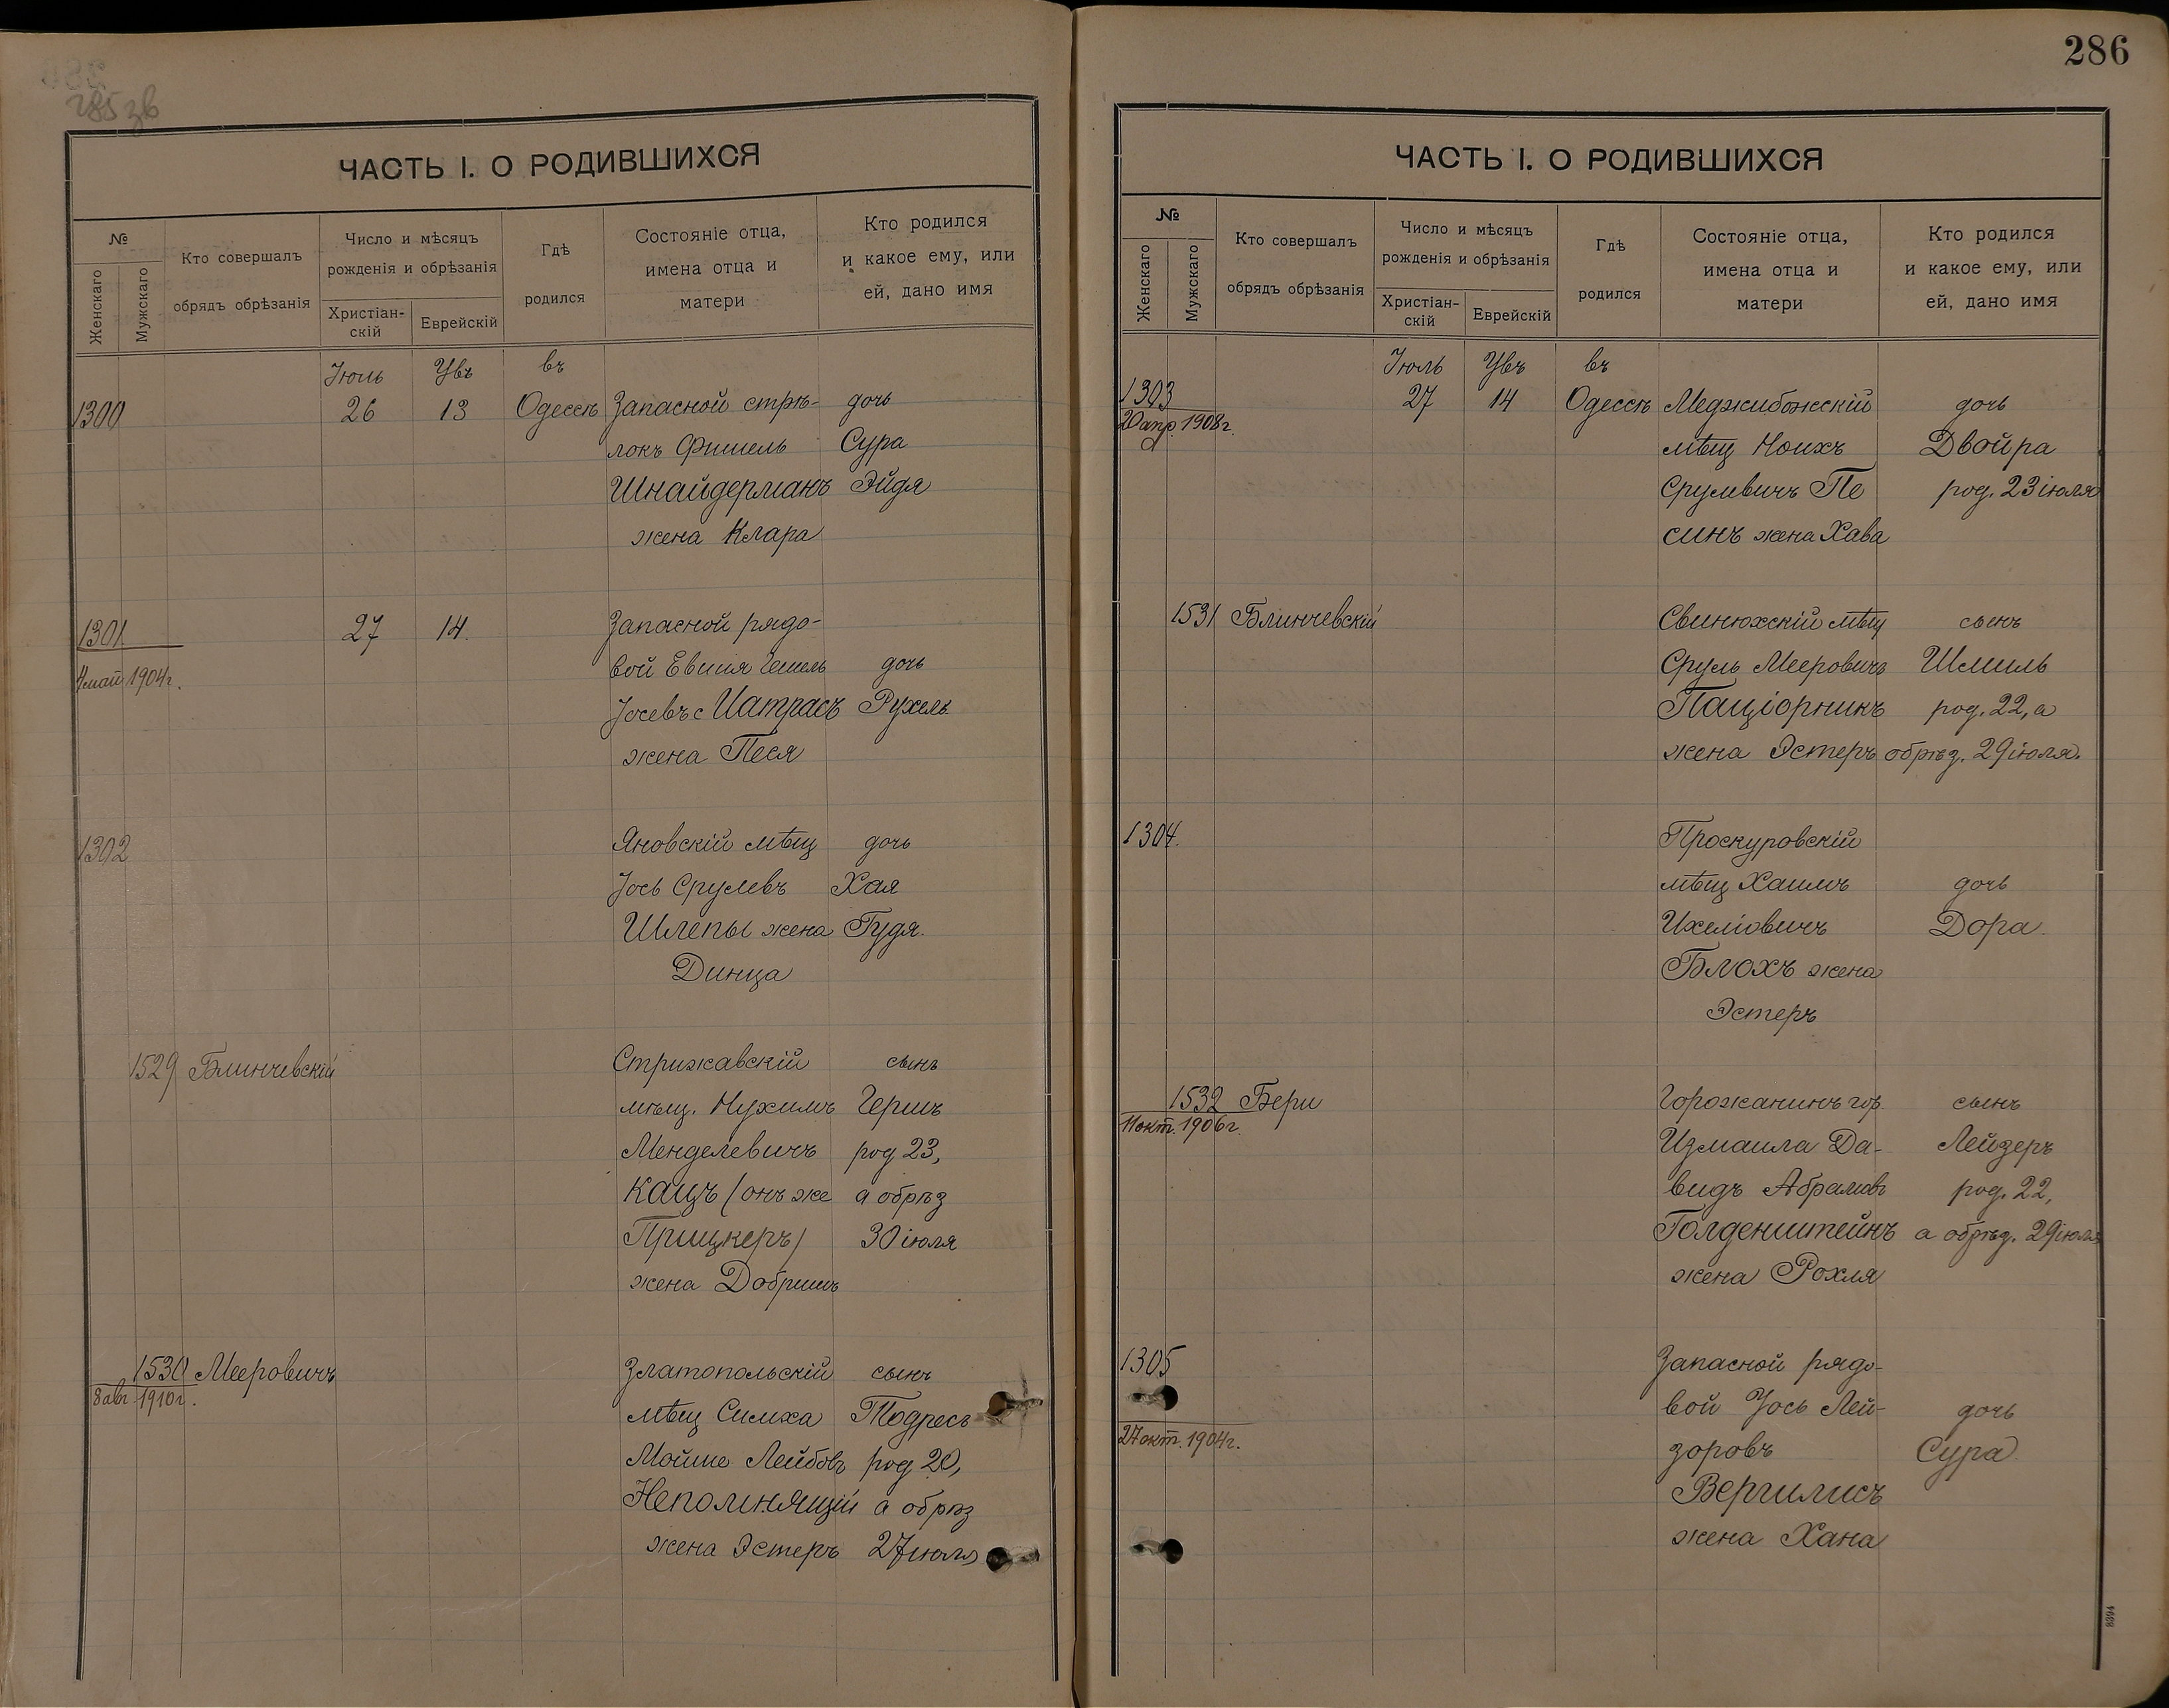 285 зв
ЧАСТЬ I. О РОДИВШИХСЯ
№
Женскаго
Мужскаго
Кто совершалъ
обрядъ обрѣзанія
Число и мѣсяцъ
рожденія и обрѣзанія
Христіан-
скій
Еврейскій
Гдѣ
родился
Состояніе отца,
имена отца и
матери
Кто родился
и какое ему, или
ей, дано имя
Іюль Увъ въ
1300 26 13 Одессѣ Запасной стрѣ- дочь
локъ Фишель Сура
Шнайдерманъ Эйдя
жена Клара
1301. 27 14. Запасной рядо-
4 май 1904 г. вой дочь
Рухель
жена Песя
1302 Яновскій мѣщ дочь
Іось Срулевъ Хая
Шлепы жена Гудя.
Динца
1529 Блинчевскій Стрижавскій сынъ
мѣщ. Нухимъ Гершъ
Менделевичъ род 23,
Кацъ (онъ же а обрѣз
Прицкеръ) 30 іюля
жена Добришъ
1530 Мееровичъ Златопольскій сынъ
8 авг 1910 г. мѣщ Симха Тодресъ
Мойше Лейбовъ род 20,
Непомнящій а обрѣз
жена Эстеръ 27 іюля
286
ЧАСТЬ I. О РОДИВШИХСЯ
№
Женскаго
Мужскаго
Кто совершалъ
обрядъ обрѣзанія
Число и мѣсяцъ
рожденія и обрѣзанія
Христіан-
скій
Еврейскій
Гдѣ
родился
Состояніе отца,
имена отца и
матери
Кто родился
и какое ему, или
ей, дано имя
Іюль Увъ въ
1303 27 14 Одессѣ Меджибожскій дочь
20 апр. 1908 г. мѣщ Ноихъ Двойра
Срулевичъ Пе род. 23 іюля
синъ жена Хава
1531 Блинчевскій Свинюхскій мѣщ сынъ
Сруль Мееровичъ Шмиль
Паціорникъ род. 22, а
жена Эстеръ обрѣз. 29 іюля.
1304. Проскуровскій
мѣщ Хаимъ дочь
Ихеліовичъ Дора.
Блохъ жена
Эстеръ
1532 Бери Горожанинъ гор. сынъ
11 окт. 1906 г. Измаила Да- Лейзеръ
видъ Абрамовъ род. 22,
Голденштейнъ а обрѣз. 29 іюля
жена Рохля
1305 Запасной рядо-
вой Іось Лей- дочь
27 окт. 1904 г. зоровъ Сура.
Вергилисъ
жена Хана
8394